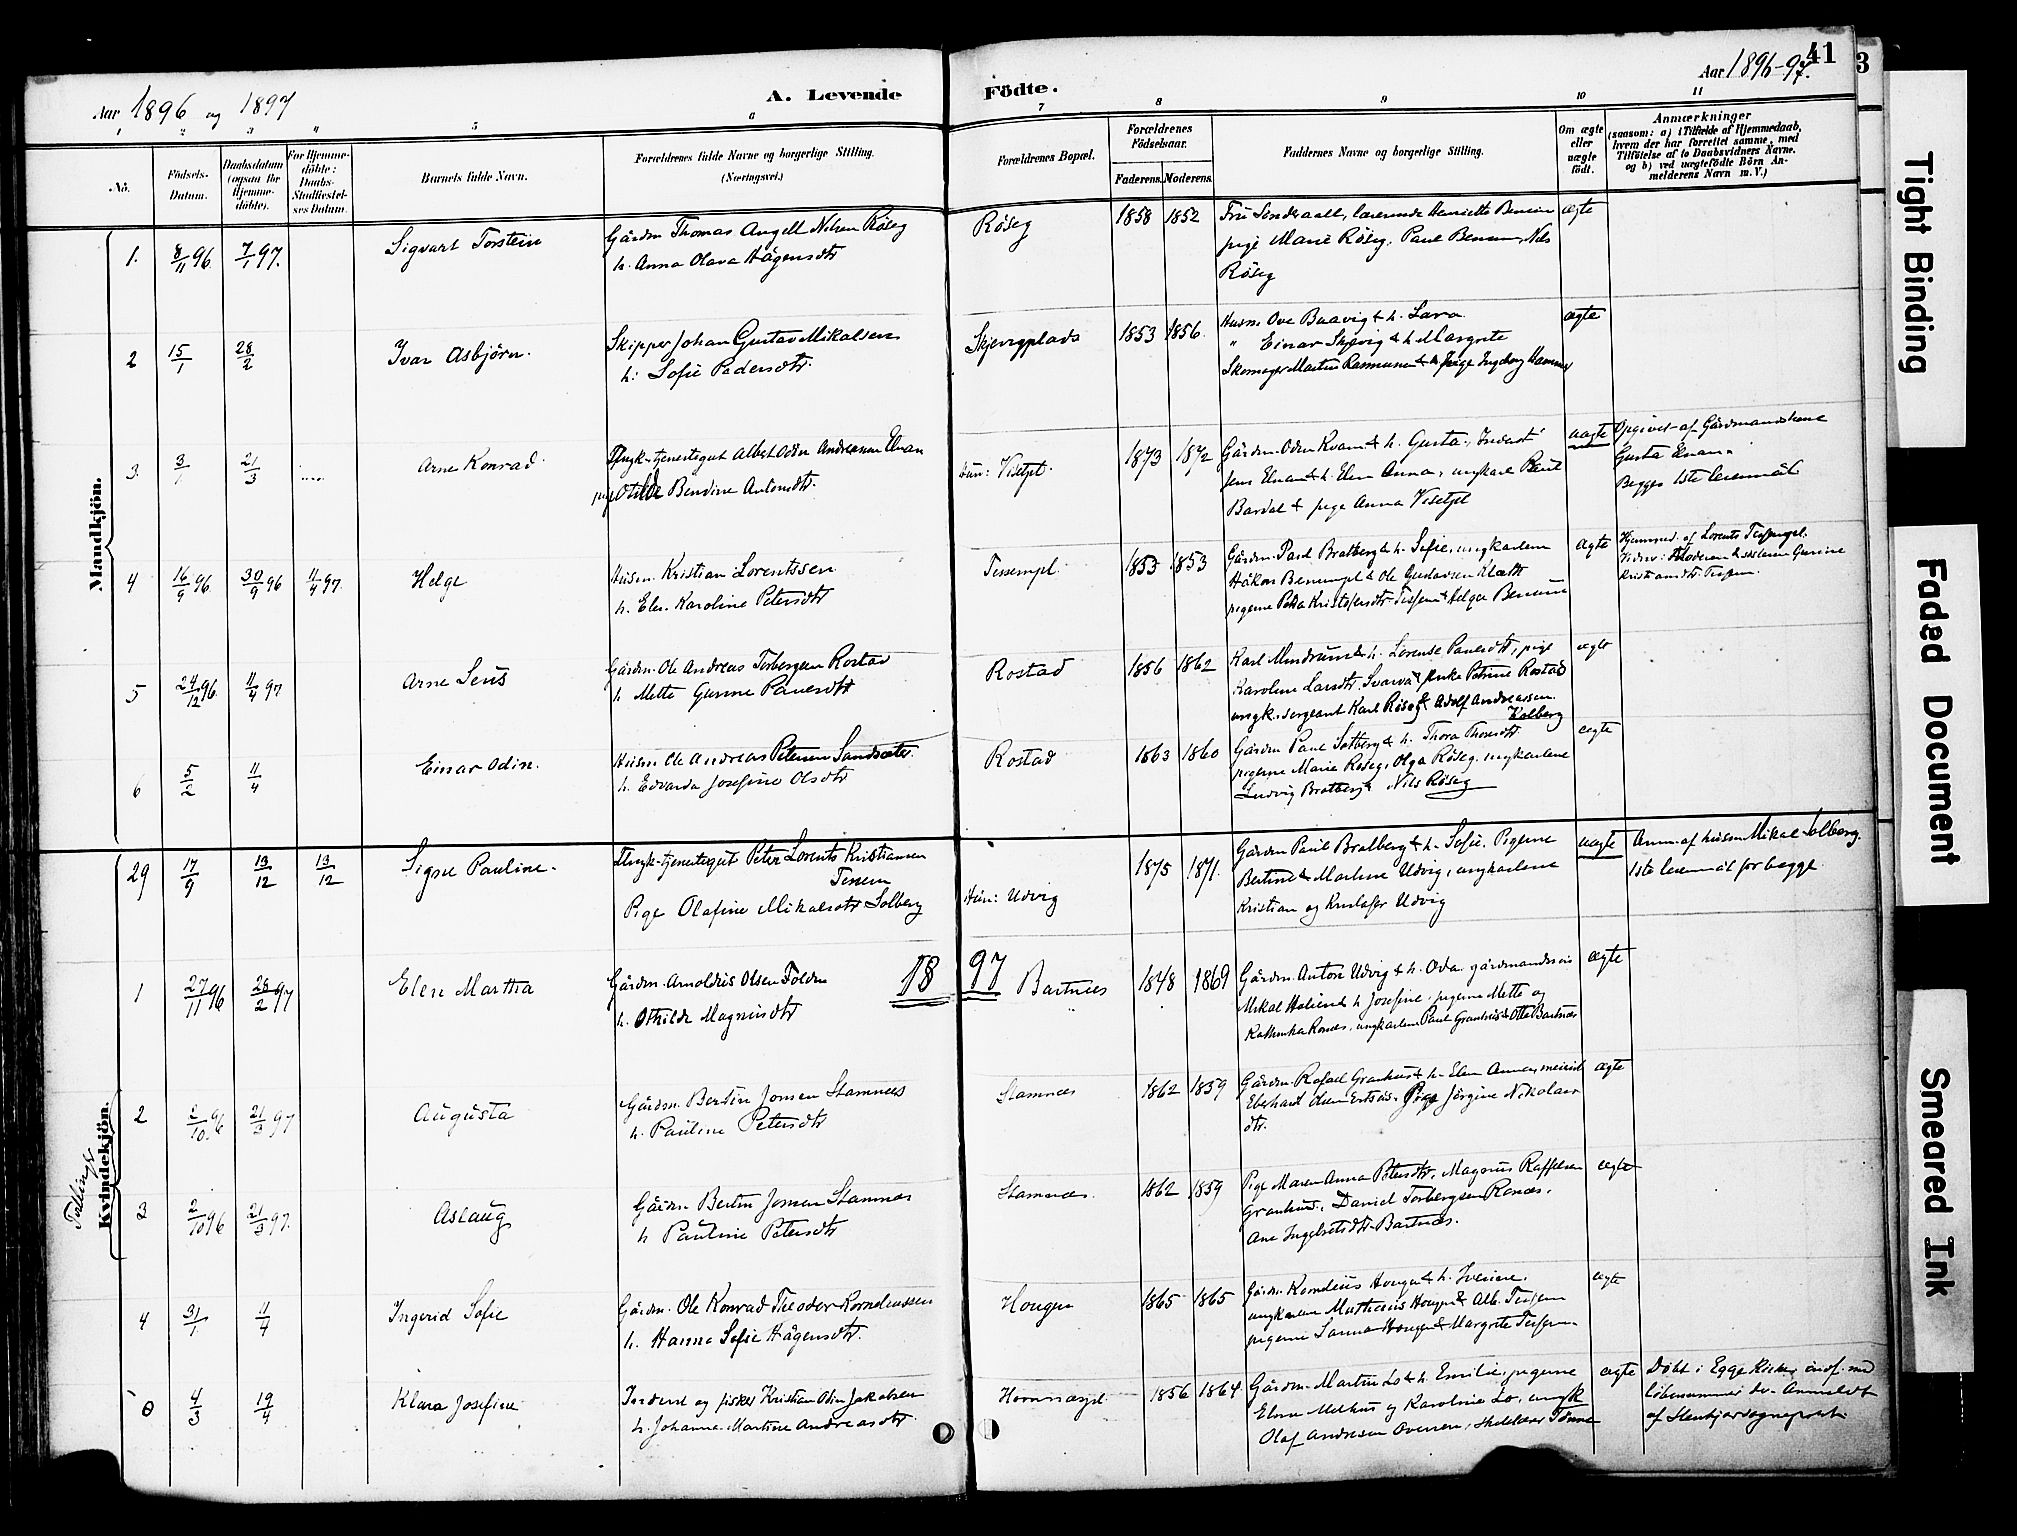 Aar 1896 og 1897
A. Levende Födte.
Aar 1896-97.
41
3
1 2 3 4 5 6 7 8 9 10 11
No.
Födsels-Datum.
Daabsdatum (ogsaa for Hjemmedöbte).
For Hjemmedöbte: Daabs-Stadfæstelses Datum.
Barnets fulde Navn.
Forældrenes fulde Navne og borgerlige Stilling.
(Næringsvei.)
Forældrenes Bopæl.
Forældrenes Födselsaar.
Faderens. Moderens.
Faddernes Navne og borgerlige Stilling.
Om ægte eller uægte födt.
Anmærkninger
(saasom: a) i Tilfælde af Hjemmedaab, hvem der har forrettet samme, med Tilföielse af to Daabsvidners Navne, og b) ved uægtefödte Börn Anmelderens Navn m. V.)
Mandkjön.
1. 8/11 96. 7/1 97. Sigvart Torstein
Gårdm Thomas Angell Nilsen Røseg
h. Anna Olava Hågensdtr
Røseg 1858 1852
Henriette Benum
pige Marie Røseg, Paul Benum, Nils
Røseg
ægte
2 15/1 28/2 Ivar Asbjörn.
Skipper Johan Gustav Mikalsen
h. Sofie Pedersdtr.
Skjevigplads 1853 1856.
Husm. Ove Baavig & h. Sara
" Einar Skjevig & h. Margrete
Skomager Martin Rasmussen & pige Ingeborg Hammer
ægte
3. 3/1 21/3 Arne Konrad
Ungk. tjenestegut Albert Odin Andreasen Elnan
pige Otilde Bendine Antonsdtr.
Hun: Visetpl. 1873 1872
Gårdm. Oden Kvam & h. Gusta,
Jens Elnan & h. Elen Anna, ungkarl Paul
Bardal & pige Anna Visetpl
uægte
Opgivet af Gårdmandskone
Gusta Kvam.
Begges 1ste leiermål
4 16/9 96. 30/9 96 11/4 97. Helge
Husm. Kristian Lorentssen
h. Elen Karoline Petersdtr
Tessempl. 1853 1853
Gårdm. Paul Bratberg & h. Sofie, ungkarlene
Håkon Benumpl & Ole Gustavsen Klæth
pigerne Petra Kristofersdtr Tessem & Helga Benum
ægte
Hjemmed. af Lorents Tessempl.
Vidner: Moderen & søsteren Gurine
Kristiansdtr. Tessem.
5 24/12 96. 11/4 97 Arne Leus
Gårdm. Ole Andreas Torbergsen Rostad
h. Mette Gurine Paulsdtr
Rostad 1856 1862
Karl Mindrum & h. Lorense Paulsdtr, pige
Karoline Larsdtr. Svarva, Enke Petrine Rostad
ungk. sergeant Karl Røseg & Adolf Andreassen
Kolberg
ægte
6 5/2 11/4 Einar Odin.
Husm Ole Andreas Petersen Sandsæter
h. Edvarda Josefine Olsdtr
Rostad 1863 1860
Gårdm Paul Solberg & h. Thora Thoresdtr
pigerne Marie Røseg, Olga Røseg, ungkarlene
Ludvig Bratberg & Nils Røseg
ægte
29 17/9 13/12 13/12 Signe Pauline.
Ungk. tjenestegut Peter Lorents Kristiansen
Tessem
Pige Olafine Mikalsdtr Solberg
Hun: Udvig 1875 1871.
Gårdm Paul Bratberg & h. Sofie. Pigerne
Bertine & Marlene Udvig, ungkarlene
Kristian og Kristofer Udvig
uægte
Anm. af husm Mikal Solberg.
1ste leiermål for begge.
1897
Tællings
Kvindekjön.
1 27/11 96 28/2 97 Elen Martha
Gårdm. Arnoldus Olsen Folden
h. Othilde Magnusdtr
Bartnes 1848 1869
Gårdm. Anton Udvig & h. Oda. gårdmandssøn
Mikal Holien & h. Josefine. pigerne Mette og
Kathinka Ronæs. ungkarlene Paul Granhus & Otto Bartnæs
ægte
2 2/10 96 21/3 97 Augusta
Gårdm. Bertin Jonsen Stamnes
h. Pauline Petersdtr
Stamnes 1862 1859
Gårdm. Rafael Granhus & h. Elen Anna,
Eberhard Olsen Ertsås. Pige Jørgine Nikolaisdtr.
ægte
3 2/10 96 21/3 97. Aslaug
Gårdm Bertin Jonsen Stamnes
h Pauline Petersdtr
Stamnes. 1862 1859
Pige Maren Anna Petersdtr, Magnus Raffelsen
Granhus, Daniel Torbergsen Ronæs,
Ane Ingebretsdtr Bartnæs.
ægte
4 31/1 11/4 Ingerid Sofie
Gårdm. Ole Konrad Theodor Korneliussen
h. Hanna Sofie Hågensdtr.
Hougen 1865 1865
Gårdm. Kornelius Hougen & h.
ungkarlene Mathæus Hougen & Alb. Tessem
pigerne Sanna Hougen & Margrete Tessem.
ægte
0 4/3 19/4 Klara Josefine
Inderst og fisker Kristian Odin Jakobsen
h. Johanna Martine Andreasdtr.
Hornnæspl. 1856 1864
Gårdm. Martin Lo & h. Emilie, pigerne
Elen Melhus og Karoline Lo, ungk
Olaf Andresen
ægte
Döbt i Egge Kirke indf. med
løbenummer 0. Anmeldt
af Stenkjær sogneprest.
Tight Binding
Faded Document
Smeared Ink